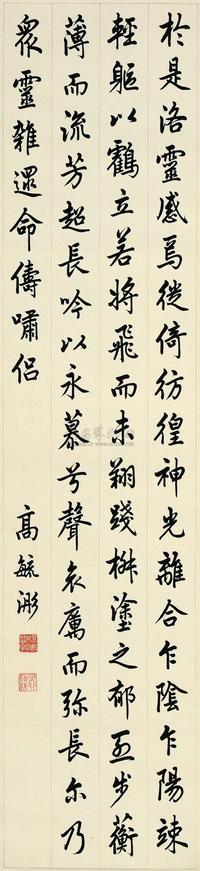 於是洛靈感焉徙倚彷徨神光離合乍陰乍陽竦
輕軀以鶴立若將飛而未翔踐椒塗之郁烈步蘅
薄而流芳超長吟以永慕兮聲哀厲而彌長尔乃
眾靈雜遝命儔嘯侶
高毓浵